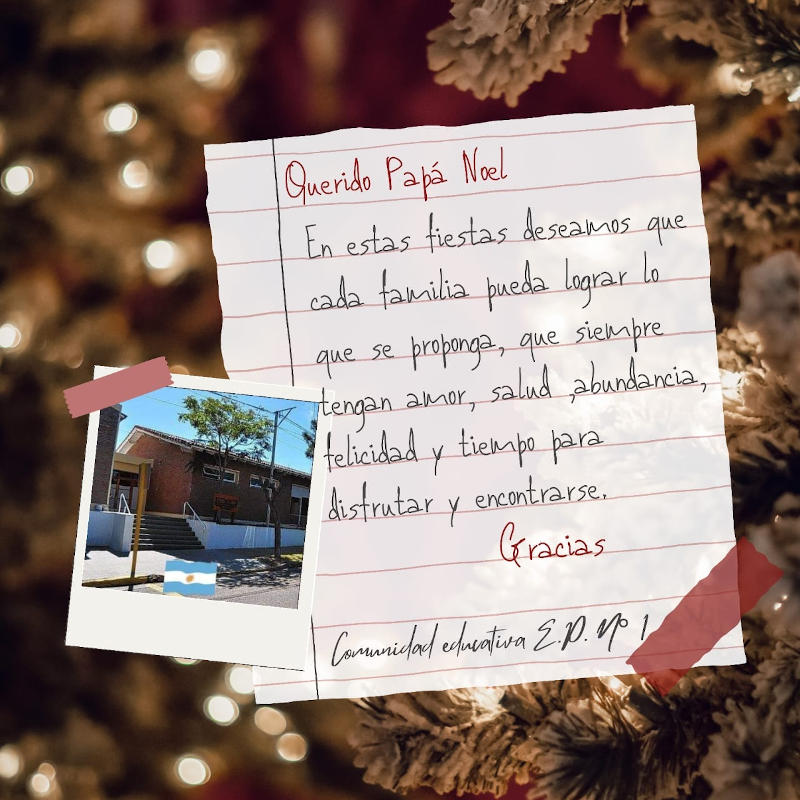 Querido Papá Noel
En estas fiestas deseamos que
cada familia pueda lograr lo
que se proponga, que siempre
tengan amor, salud ,abundancia,
felicidad y tiempo para
disfrutar y encontrarse.
Gracias
Comunidad educativa E.P. Nº 1